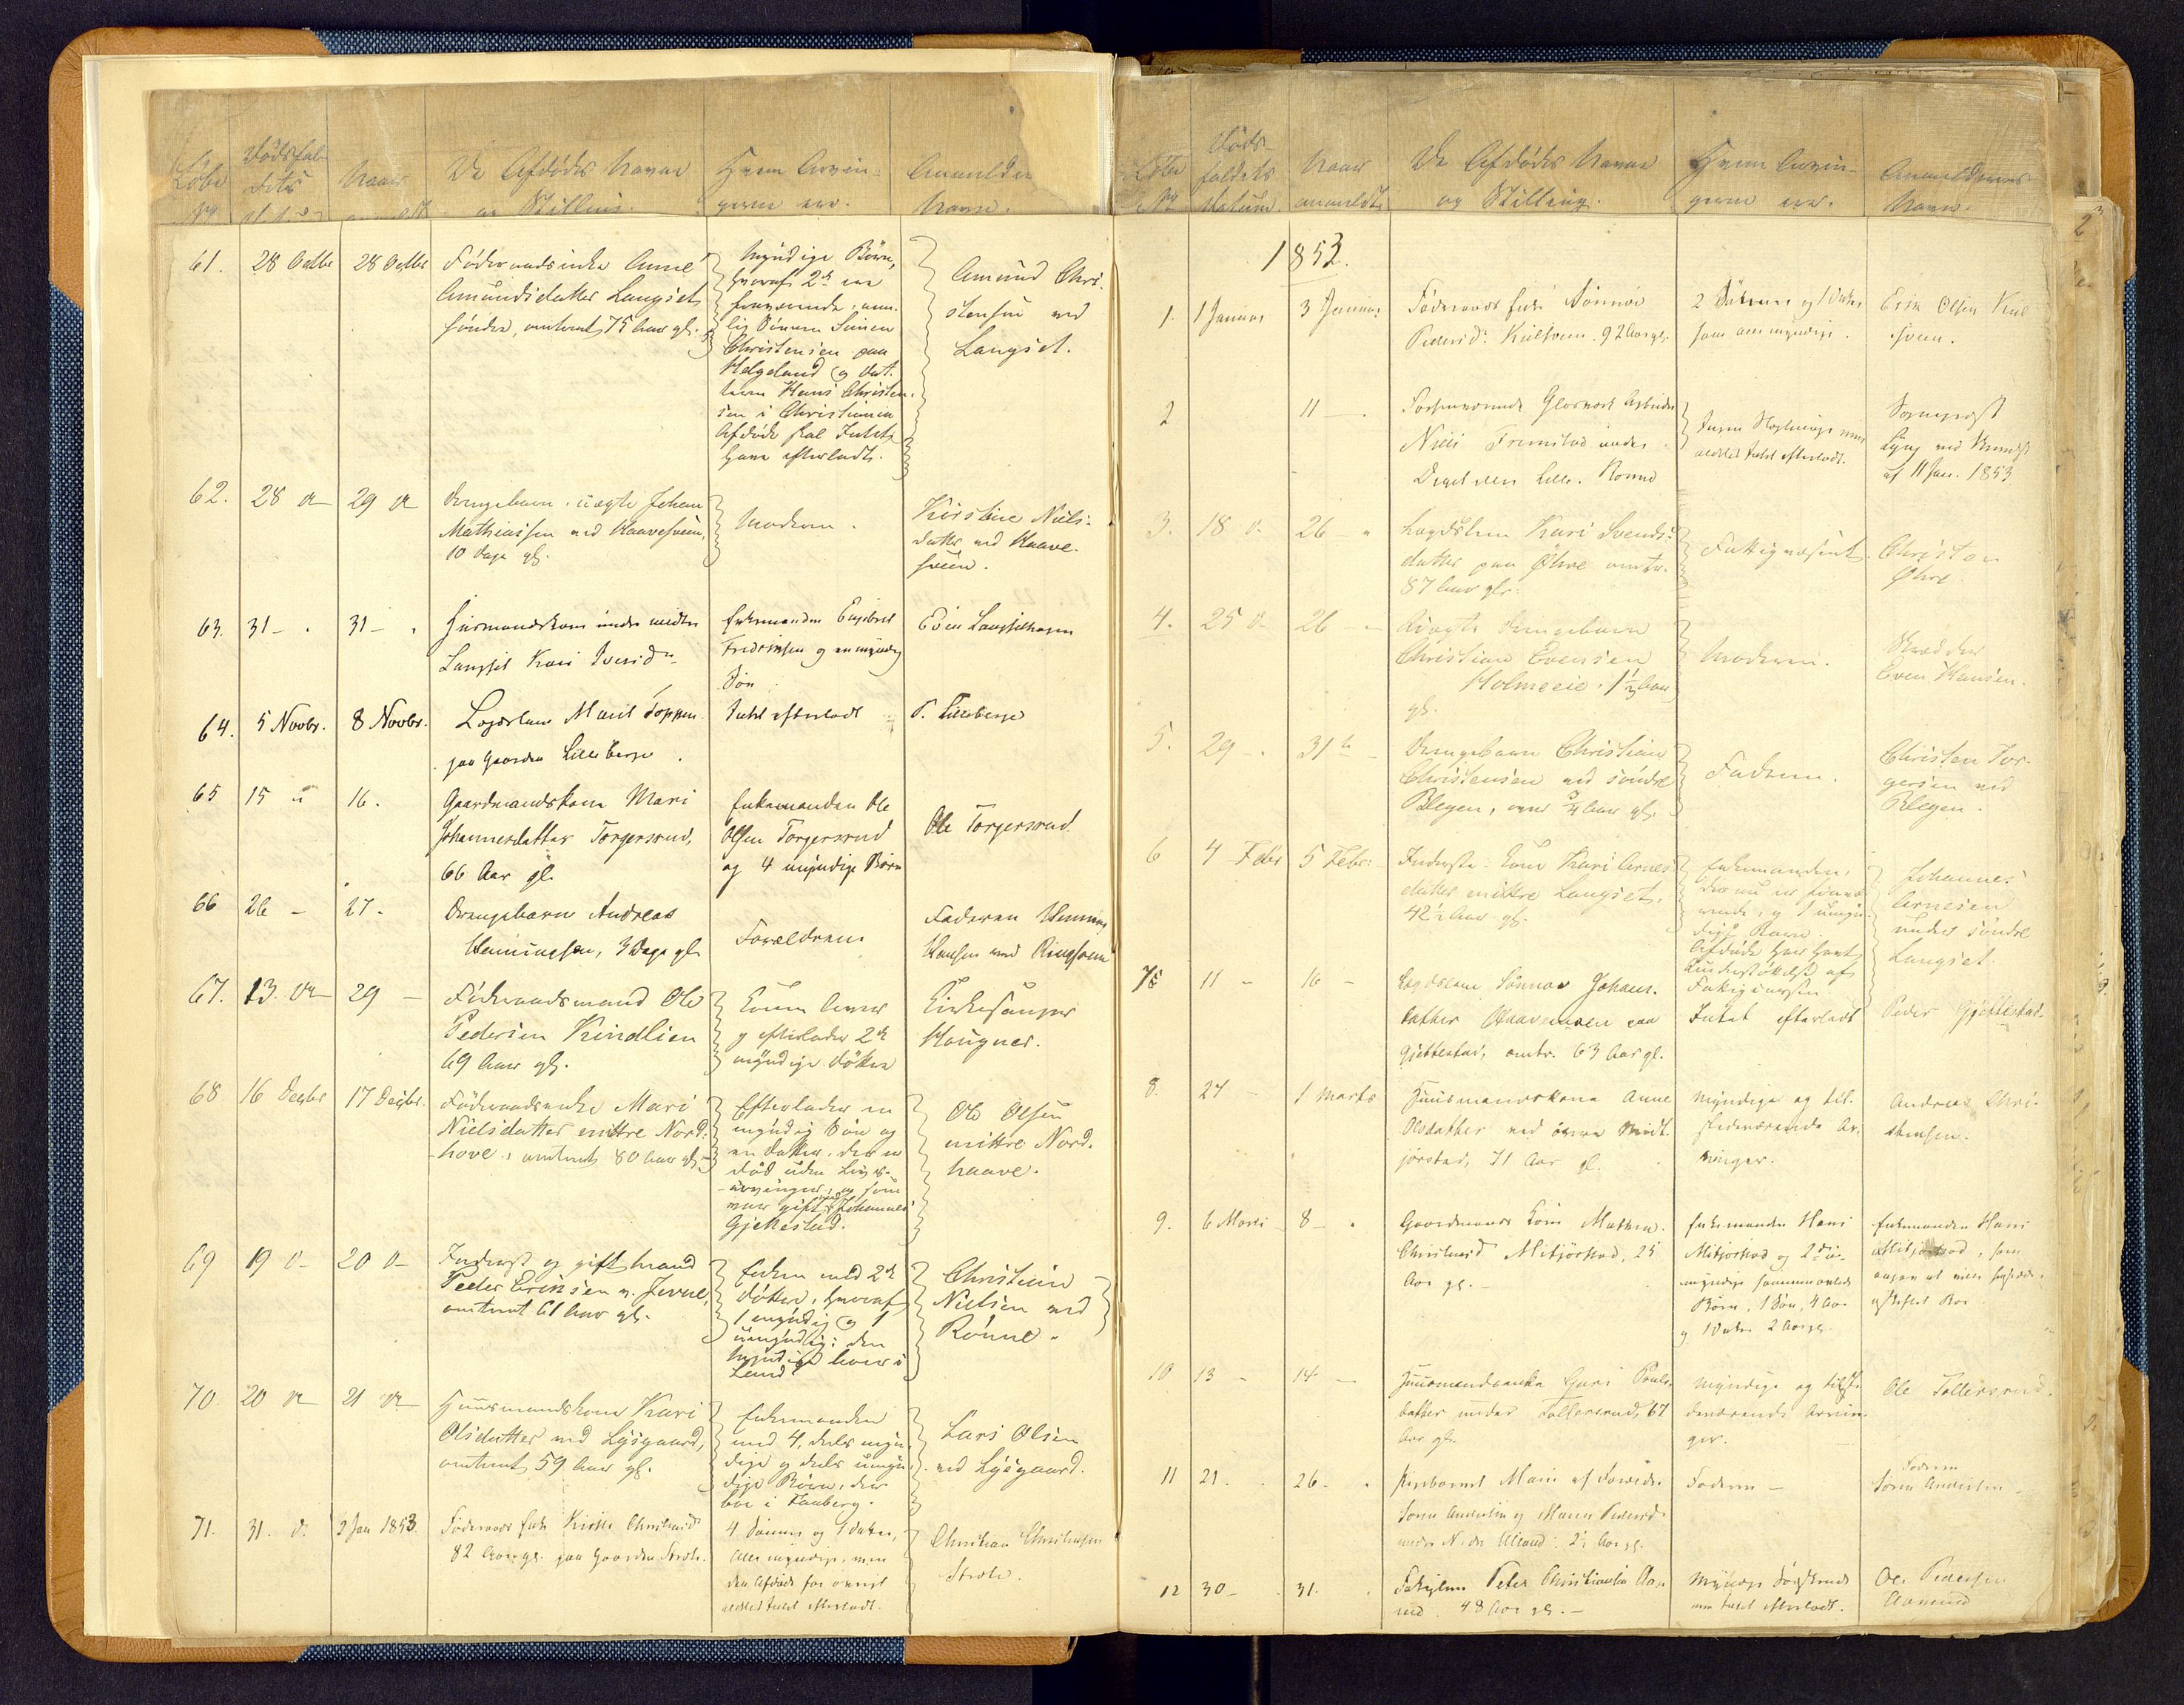 Löbe
No
Dödsfal-
dets
Naar
De Afdödes Navne
og Stilling.
Hvem Arvin-
gerne ere.
Anmelder
Navne.
61. 28 Octbr 28 Octbr
Föderaadsenke Anne
Amundsdatter Langset
söndre, omtrent 75 Aar gl.
Myndige Börn,
hvoraf 2de ere
fraværende, nem-
lig Sönnen Simen
Christensen paa
Helgeland og
Hans Christen-
sen i Christiania
Afdöde skal Intet
have efterladt.
Amund Chri-
stensen ved
Langset.
62. 28 d 29 d
Drengebarn uægte Johan
Mathiassen ved Haavesveen,
10 Dage gl.
Moderen.
Kirstine Niels-
datter ved Haave-
sveen.
63. 31 - 31 -
Huusmandskone under nedre
Langset Kari Iversdr
Enkemanden Engebret
Fredriksen og en myndig
Sön
Even Langsethagen
64. 5 Novbr. 8 Novbr.
Lægdslem Marit Toppen
paa Gaarden Lilleberge.
Intet efterladt
P. Lilleberge
65 15 " 16.
Gaardmandskone Mari
Johannesdatter Torgersrud,
66 Aar gl.
Enkemanden Ole
Olsen Torgersrud
og 4 myndige Börn
Ole Torgersrud.
66 26 - 27 -
Drengebarn Andreas
Henningsen, 3 Dage gl.
Forældrene
Faderen Henning
Hansen ved Ringsveen
67. 13. d 29 -
Föderaadsmand Ole
Pedersen Kindlien
69 Aar gl.
Konen lever
og efterlader 2de
myndige Döttre
Kirkesanger
Haugner.
68. 16 Decbr 17 Decbr.
Föderaadsenke Mari
Nielsdatter mittre Nord-
hove, omtrent 80 Aar gl.
Efterlader en
myndig Sön og
en Datter, der er
död uden Livs-
arvinger, og som
var gift med Johannes
Gjettestad.
Ole Olsen
mittre Nord-
haave.
69 19 d 20 d
Inderst og gift Mand
Peder Eriksen n. Jevne,
omtrent 61 Aar gl.
Enken med 2de
Döttre, hvoraf
1 myndig og 1
umyndig; den
myndige boer i
Land
Christian
Nielsen ved
Rönne.
70. 20 d 21 d
Huusmandskone Kari
Olsdatter ved Lysgaard,
omtrent 59 Aar gl.
Enkemanden
med 4, deels myn-
dige og deels umyn-
dige Börn, der
boe i Faaberg.
Lars Olsen
ved Lysgaard.
71. 31. d. 2 Jan 1853
Föderaads Enke Kirsti Christensd
82 Aar gl. paa Gaarden Strøte.
4 Sönner og 1 Datter,
Alle myndige, men
den Afdöde har övrigt
aldeles Intet efterladt.
Christian Christensen
Strøte.
Löbe
No
Döds-
faldets
Datum.
Naar
anmeldt.
De Afdödes Navne
og Stilling.
Hvem Arvin-
gerne ere.
Anmelderens
Navn.
1853.
1. 1 Januar 3 Januar
Föderaads Enke Sönnöv
Pedersdr Kulsveen. 92 Aar gl.
2 Sönner og 1 Datter
som alle myndige.
Erik Olsen Kul-
sveen.
2 11 -
Forhenværende Glasværk Arbeider
Niels Fremstad under
Lille. Ronne
Ingen Slægtninge men
aldeles Intet efterladt.
Sogneprest
Lyng ved
af 11 Jan. 1853
3. 18 d. 26 - "
Lægdslem Kari Svends-
datter paa Öhre omtr.
87 Aar gl.
Fattigvæsenet
Christen
Öhre
4. 25 d. 26 -
Uægte Drengebarn
Christian Evensen
Holmseie. 1½ Aar
gl.
Moderen.
Skredder
Even Hansen.
5. 29 - 31te
Drengebarn Christian
Christensen ved söndre
Blegen, over ¾ Aar gl.
Faderen.
Christen Tor-
gersen ved
Blegen.
6 4 Febr 5 Febr:
Inderste Kone Kari Arnes-
datter mittre Langset.
42½ Aar gl.
Enkemanden,
der nu er fravæ-
rende, og 1 umyn-
digt Barn.
Afdöde har havt
Understöttelse af
Fattigvæsenet
Johannes
Arnesen
under söndre
Langset.
7 11 - 16 -
Lægdslem Sönnöv Johans-
datter Haavemoen paa
Gjettestad, omtr. 63 Aar gl.
Intet efterladt
Peder Gjettestad.
8. 24 - 1 Marts
Huusmandskone Anne
Olsdatter ved övre Midt-
jörstad, 71 Aar gl.
Myndige og til-
stedeværende Ar-
vinger.
Andreas Chri-
stensen.
9. 6 Marts 8 -
Gaardmands Kone Mathea
Christensd Mitjörstad, 25
Aar gl. -
Enkemanden Hans
Mitjörstad og 2de u-
myndige sammenavlede
Börn, 1 Sön, 4 Aar
og 1 Datter 2 Aar gl.
Enkemanden Hans
Mitjörstad, som
agter at
uskiftet Boe
10 13 - 14 -
Huusmandsenke Guri Pouls-
datter under Tollersrud, 67
Aar gl.
Myndige og tilste-
deværende Arvin-
ger.
Ole Tollersrud.
11 21. 26 -
Pigebarnet Marie af Forældr.
Sören Andersen og Maren Pedersd.
under N. 2½ Aar gl.
Faderen -
Faderen
Sören Andersen
12 30 - 31.
Fattiglem Peter Christiansen Aa-
rud. 48 Aar gl. -
Myndige Söskende
men Intet efterladt.
Ole Pedersen
Aamund